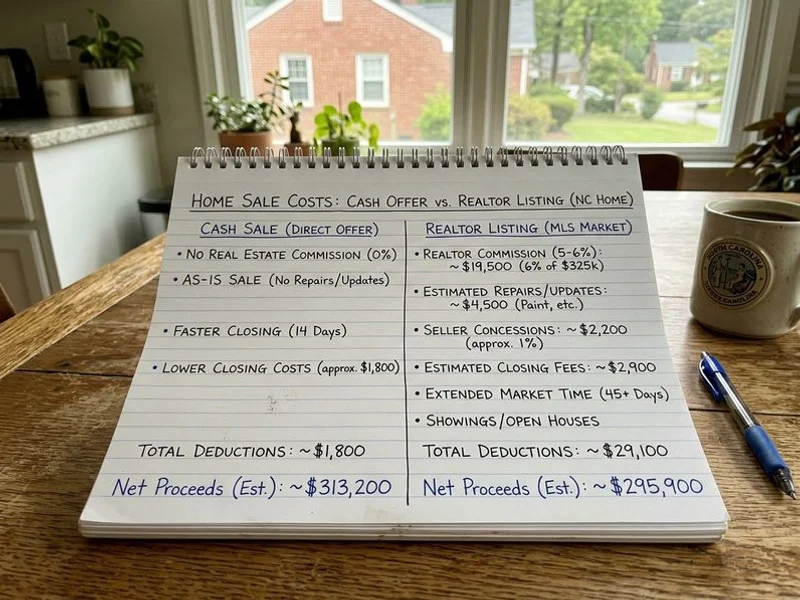 HOME SALE COSTS: CASH OFFER VS. REALTOR LISTING (NC HOME)
CASH SALE (DIRECT OFFER)
• NO REAL ESTATE COMMISSION (0%)
• AS-IS SALE (No Repairs/Updates)
• FASTER CLOSING (14 Days)
• LOWER CLOSING COSTS (approx. $1,800)
TOTAL DEDUCTIONS: ~$1,800
Net Proceeds (Est.): ~$313,200
REALTOR LISTING (MLS MARKET)
• REALTOR COMMISSION (5-6%):
~$19,500 (6% of $325k)
• ESTIMATED REPAIRS/UPDATES:
~$4,500 (Paint, etc.)
• SELLER CONCESSIONS: ~$2,200
(approx. 1%)
• ESTIMATED CLOSING FEES: ~$2,900
• EXTENDED MARKET TIME (45+ Days)
• SHOWINGS/OPEN HOUSES
TOTAL DEDUCTIONS: ~$29,100
Net Proceeds (Est.): ~$295,900
NORTH CAROLINA